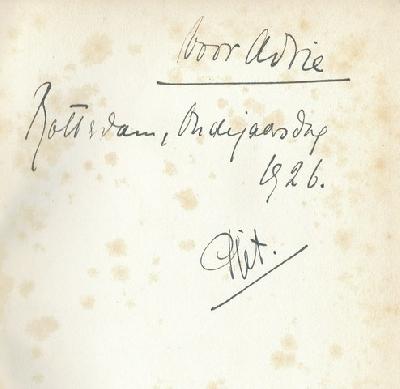 Voor Adrie
Rotterdam, Oudejaarsdag
1926.